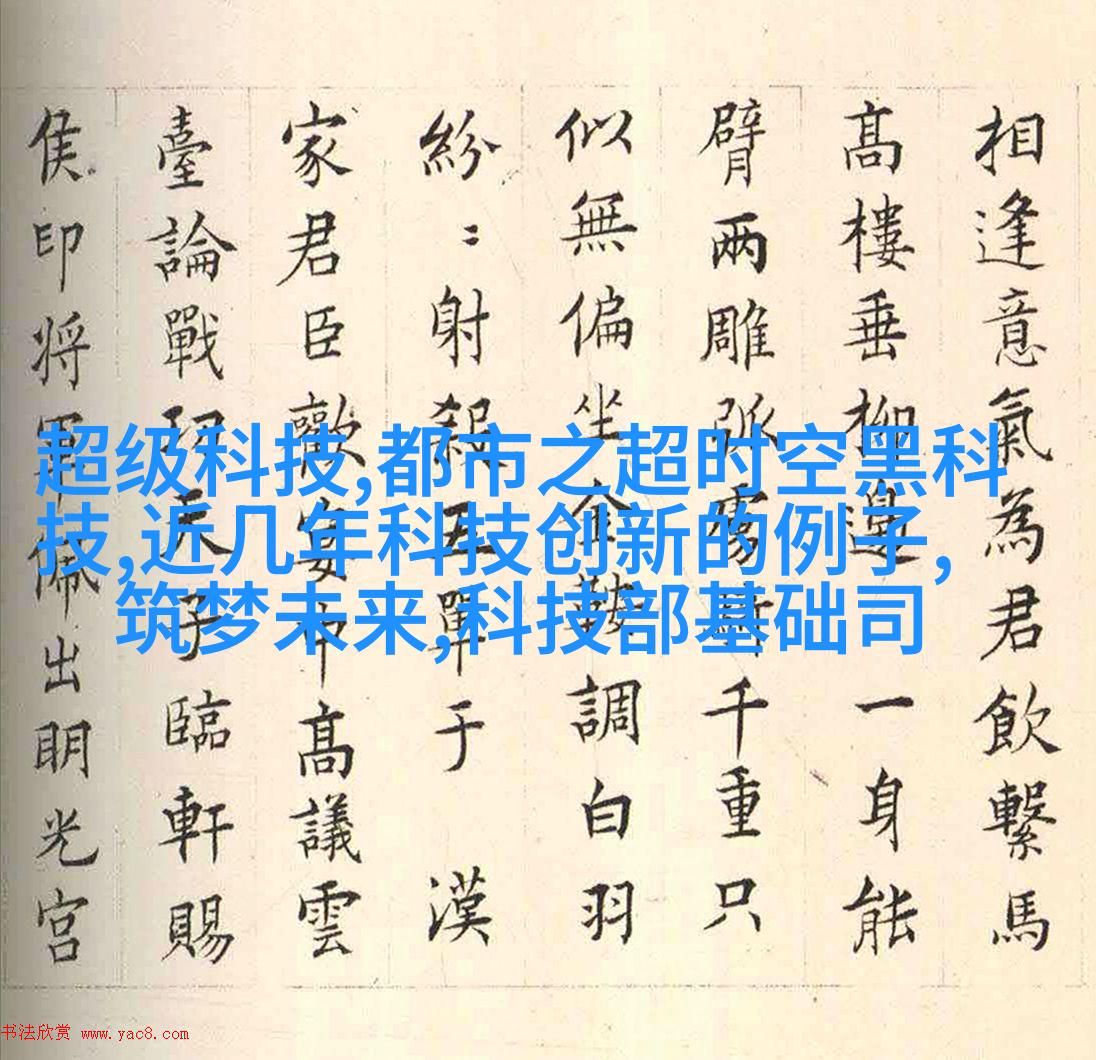 相逢意氣為君飲繫馬
髙樓垂柳邊一身能
臂兩雕弧虜騎千重只
似無偏坐金鞍調白羽
紛〻射殺五單于 漢
家君臣歡宴中髙議雲
臺論戰功天子臨軒賜
侯印将軍佩出明光宮
超级科技,都市之超时空黑科
技,近几年科技创新的例子,
筑梦未来,科技部基础司
书法欣赏 www.yac8.com